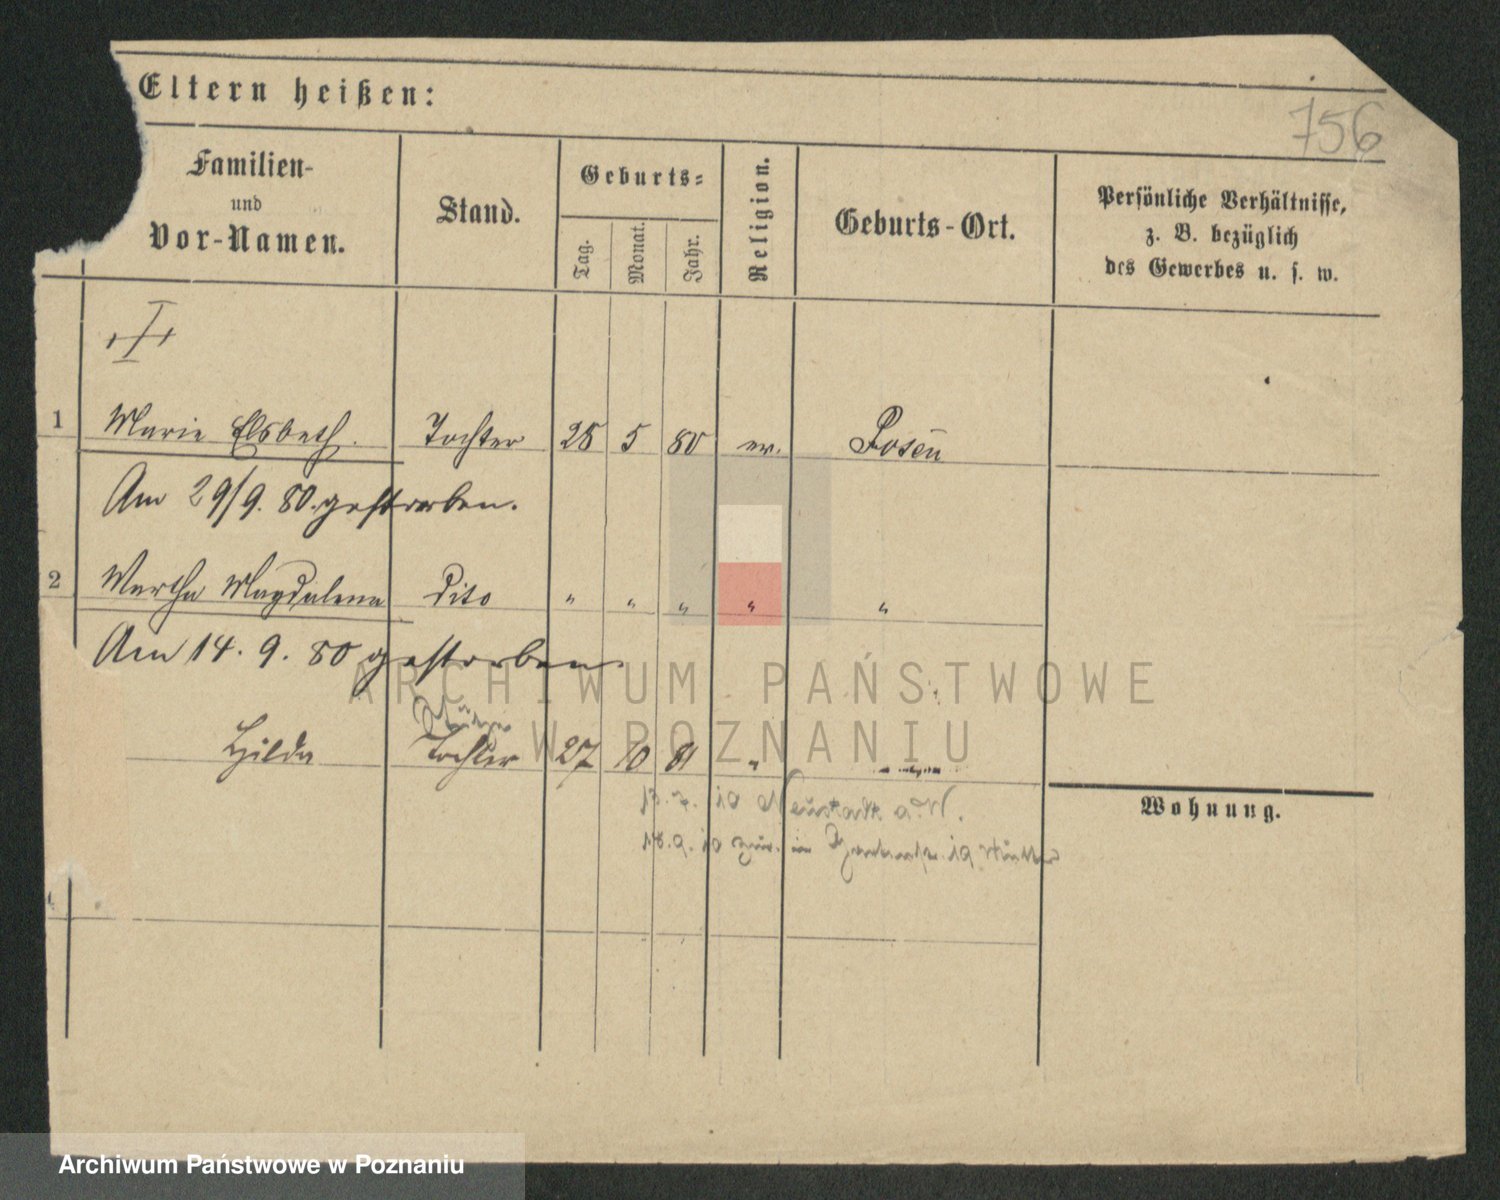 Eltern heißen:
756
Familien-
und
Vor-Namen.
Stand.
Geburts-
Tag.
Monat.
Jahr.
Religion.
Geburts-Ort.
Persönliche Verhältnisse,
z. B. bezüglich
des Gewerbes u. s. w.
1 Marie Elsbeth. Tochter 28 5 80 ev. Posen
Am 29/9. 80. gestorben.
2 Martha Magdalena Dito " " " " "
Am 14. 9. 80 gestorben.
Hilda Tochter 27 10 81 "
13. 7. 10 Neustadt a. W.
18. 9. 10 zur. in 19
Wohnung.
ARCHIWUM PAŃSTWOWE
W POZNANIU
Archiwum Państwowe w Poznaniu